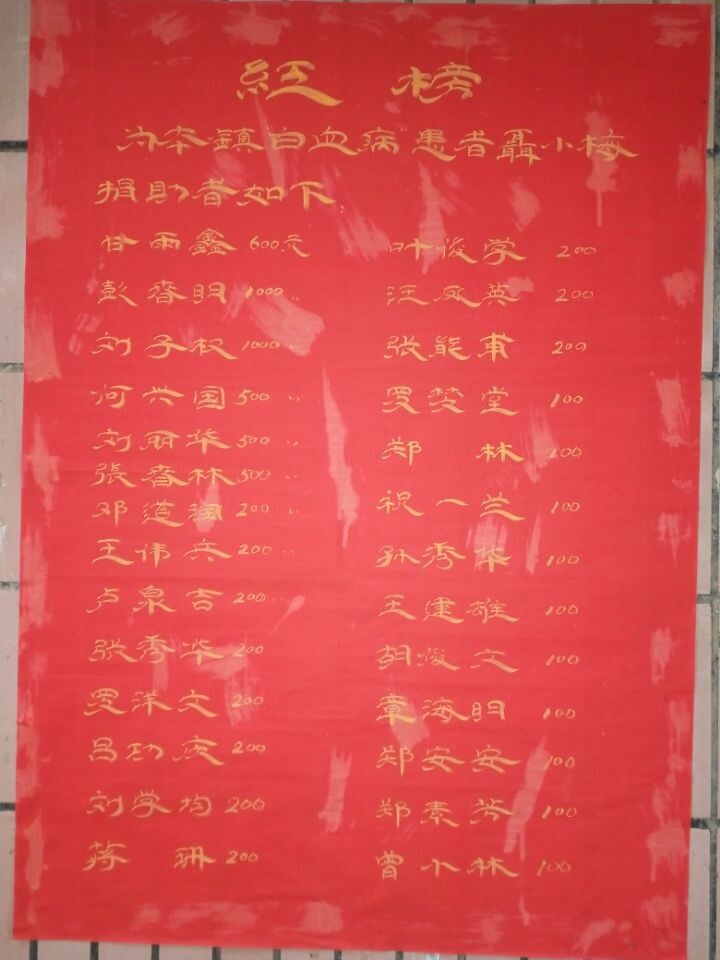 紅榜
为本鎮白血病患者聶小梅
捐助者如下.
甘雨鑫 600元
彭春明 1000〃
刘子权 1000〃
何兴国 500〃
刘丽华 500〃
張春林 500〃
邓道国 200〃
王伟兵 200〃
卢泉吉 200〃
张秀华 200
罗洪文 200
吕功庆 200
刘学均 200
蒋 珊 200
叶俊学 200
汪凤英 200
张能甫 200
罗楚堂 100
郑 林 100
祝一兰 100
孙秀华 100
王建雄 100
胡俊文 100
章海明 100
郑安安 100
郑素芳 100
曾小林 100